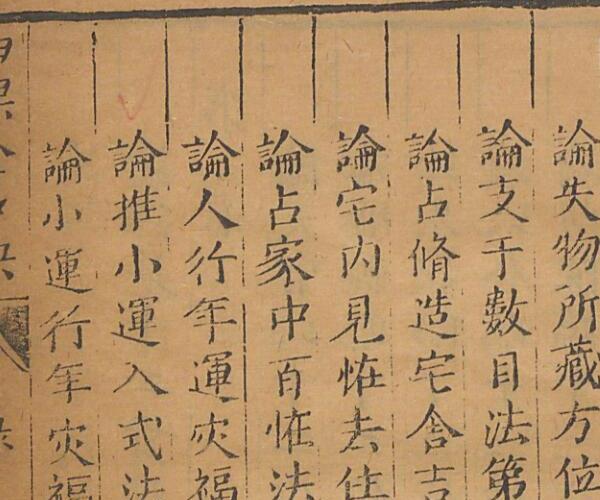 論失物所藏方位
論支干數目法第
論占脩造宅舍吉
論宅内見恠去住
論占家中百恠法
論人行年運灾福
論推小運入式法
論小運行年灾福